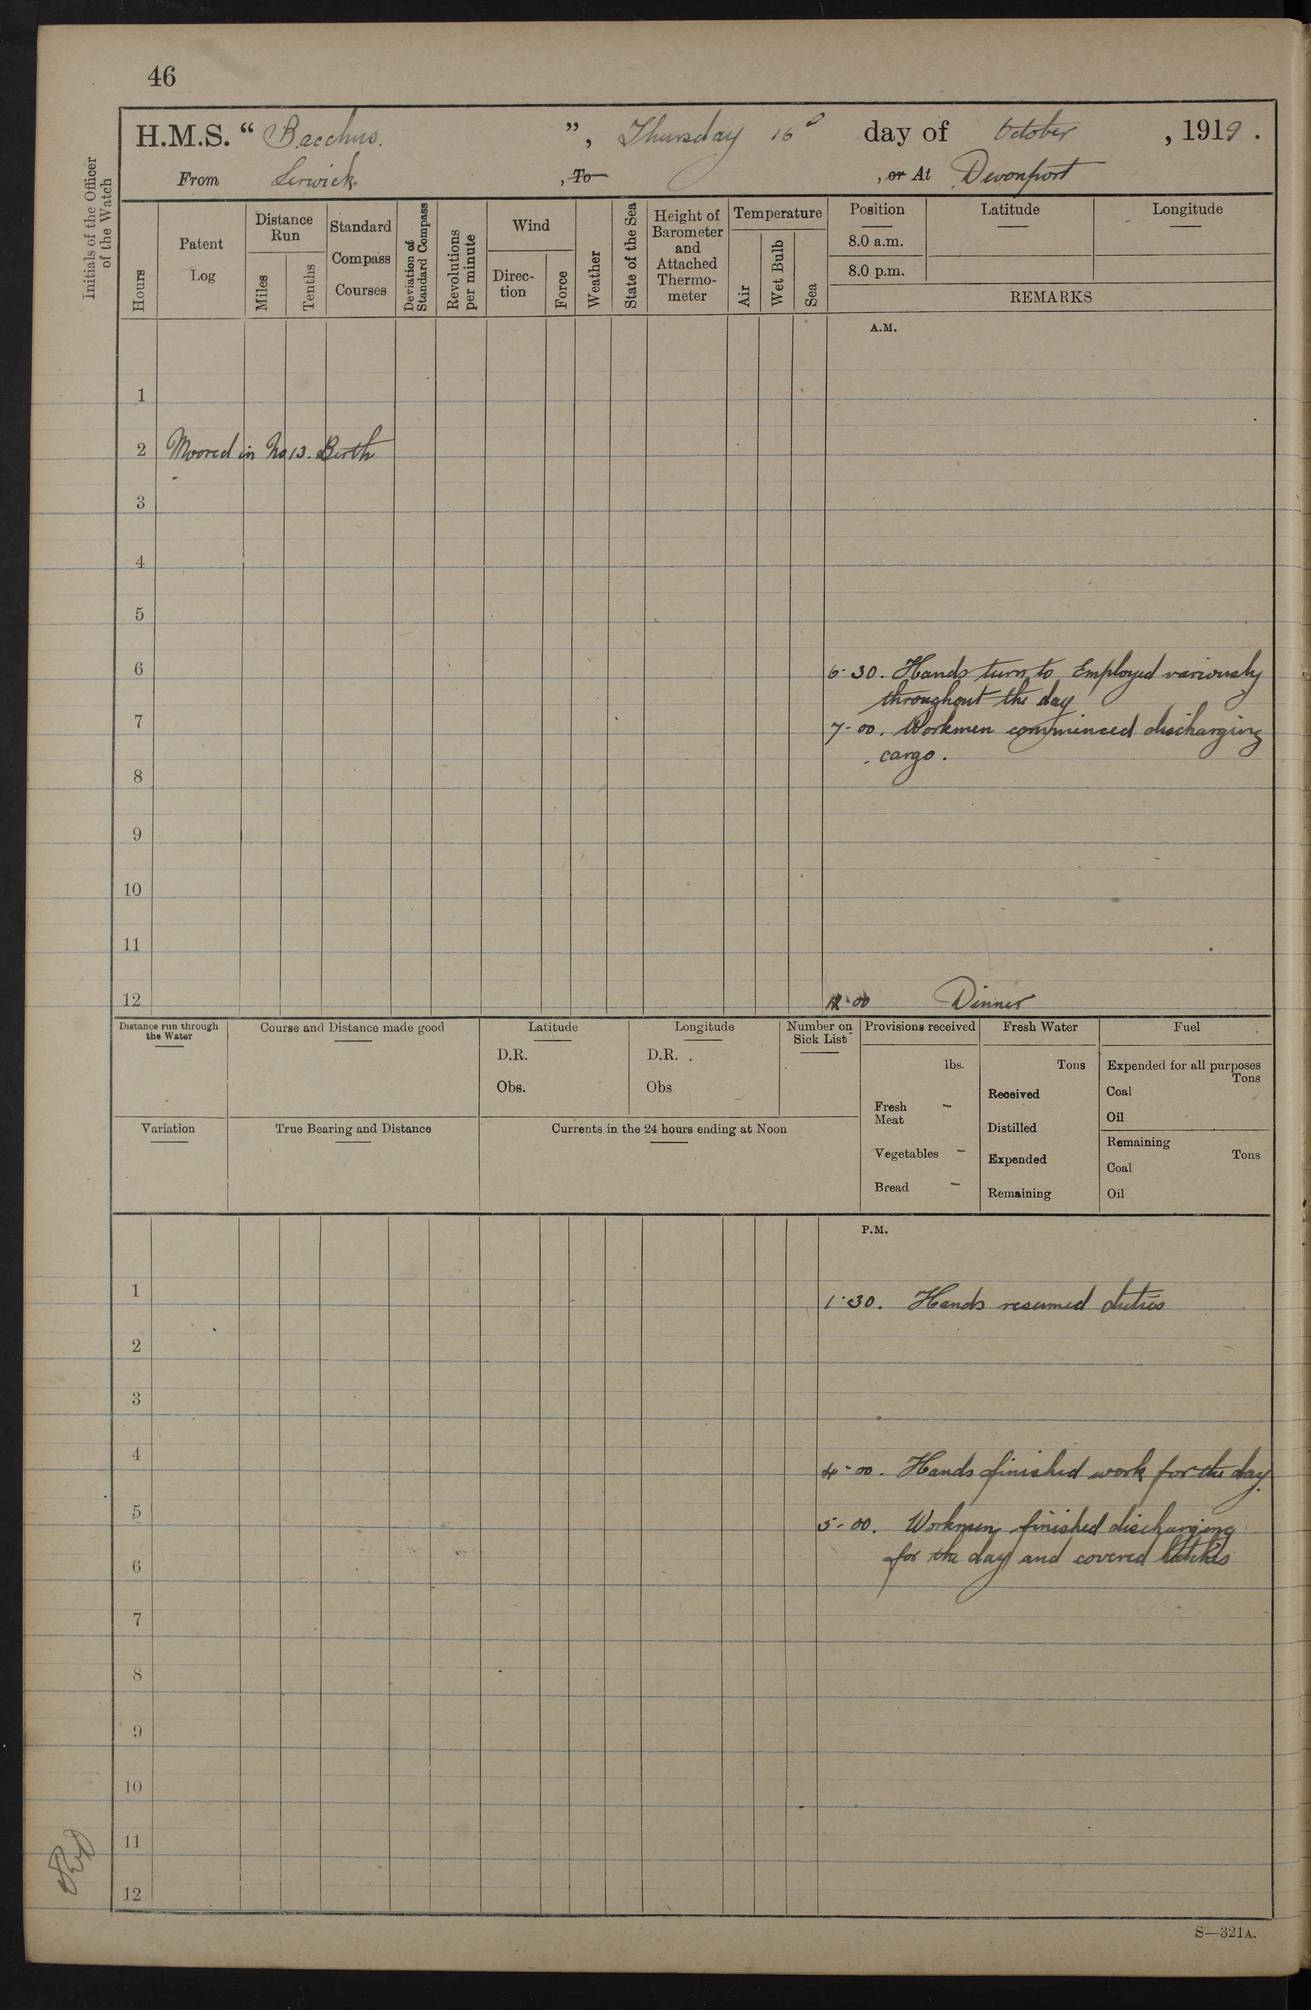 46
H.M.S. “ Bacchus. ”, Thursday 16 day of October , 1919 .
From Lerwick. , To , or At Devonport
Initials of the Officer of the Watch
Hours
Patent Log
Distance Run
Miles
Tenths
Standard Compass Courses
Deviation of Standard Compass
Revolutions per minute
Wind
Direc-tion
Force
Weather
State of the Sea
Height of Barometer and Attached Thermo-meter
Temperature
Air
Wet Bulb
Sea
Position Latitude Longitude
8.0 a.m.
8.0 p.m.
REMARKS
A.M.
1
2 Moored in No 13. Berth
3
4
5
6 6-30. Hands turn to Employed variously
throughout the day
7 7-00. Workmen commenced discharging
cargo.
8
9
10
11
12 12-00 Dinner
Distance run through the Water
Course and Distance made good
Latitude
D.R.
Obs.
Longitude
D.R.
Obs
Number on Sick List
Provisions received
lbs.
Fresh Meat –
Vegetables –
Bread –
Fresh Water
Tons
Received
Distilled
Expended
Remaining
Fuel
Expended for all purposes
Tons
Coal
Oil
Remaining
Tons
Coal
Oil
Variation
True Bearing and Distance
Currents in the 24 hours ending at Noon
P.M.
1 1-30. Hands resumed duties
2
3
4 4-00. Hands finished work for the day.
5 5-00. Workmen finished discharging
6 for the day and covered hatches
7
8
9
10
11
12
S—321A.